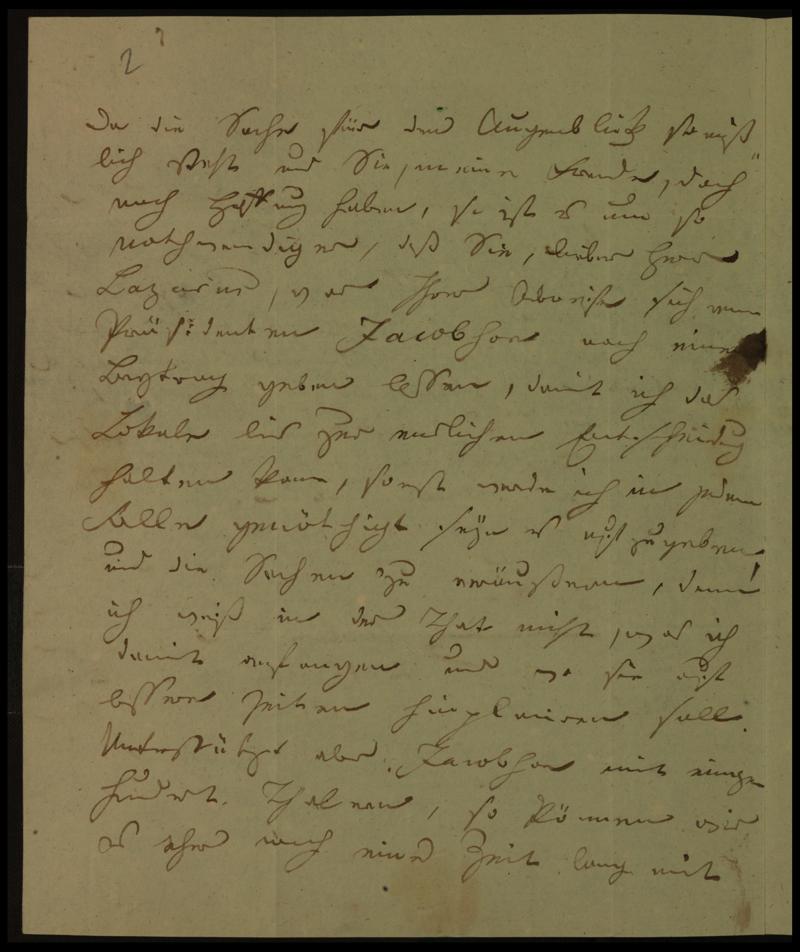 2
Da die Sache für den Augenblick so miß
lich steht und Sie, meine Freunde, doch
noch Hoffnung haben, so ist es um so
nothwendiger, daß Sie, lieber Herr
Lazarus, vor Ihrer Abreise sich vom
Präsidenten Jacobson noch einen
Beytrag geben lassen, damit ich das
Lokale bis zur endlichen Entscheidung
halten kann, sonst werde ich in jedem
Falle genöthigt seyn es aufzugeben,
und die Sachen zu veräußern, denn
ich weiß in der That nicht, was ich
damit anfangen und wo sie auf
bessere Zeiten hinplaciren soll.
Unterstützt aber Jacobson mit einigen
hundert Thalern, so können wir
es eher noch eine Zeit lang mit